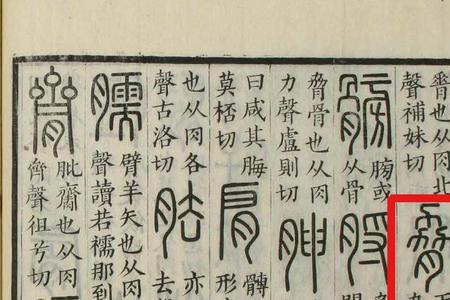 也从肉北
聲補妹切
脅
髈
膀或
从骨
脟
脅骨也从肉
力聲盧則切
胂
曰咸其脢
莫桮切
肩
髆
形
也从肉各
聲古洛切
胠
亦
去
臑
臂羊矢也从肉
聲讀若襦那到
𪗍
肶𪗍也从肉
齊聲徂兮切